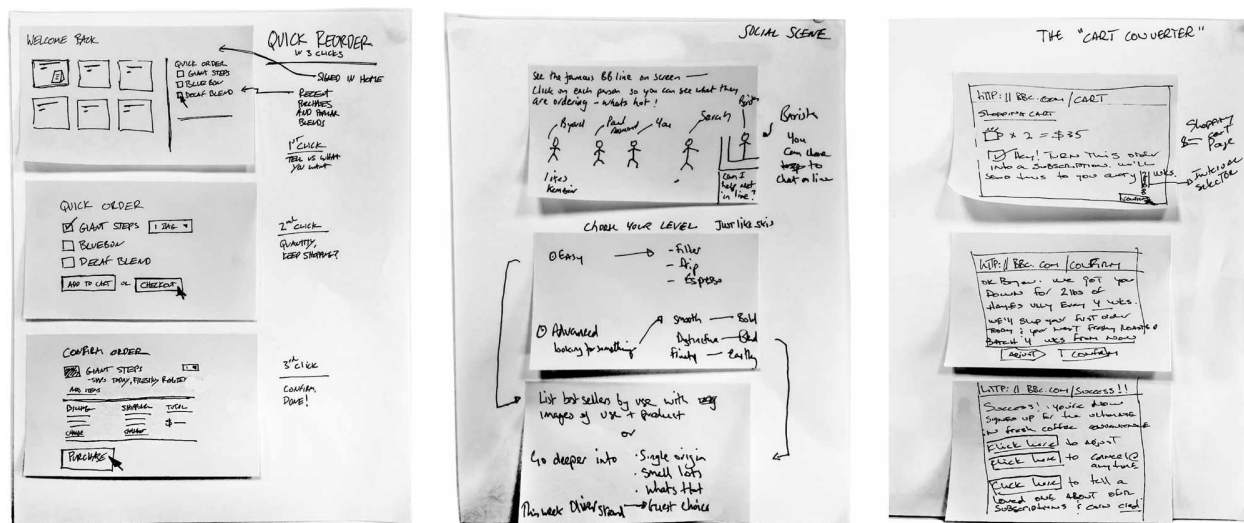 WELCOME BACK
QUICK ORDER
GIANT STEPS
BLUEBON
DECAF BLEND
QUICK REORDER
IN 3 CLICKS
SIGNED IN HOME
RECENT
PURCHASES
AND POPULAR
BLENDS
1st CLICK
TELL US WHAT
YOU WANT
QUICK ORDER
GIANT STEPS 1 BAG
BLUEBON
DECAF BLEND
ADD TO CART OR CHECKOUT
2nd CLICK
QUANTITY,
KEEP SHOPPING?
CONFIRM ORDER
GIANT STEPS
- SHIPS TODAY, FRESHLY ROASTED
ADD ITEMS
BILLING SHIPPING TOTAL
CHANGE CHANGE $ —
PURCHASE
3rd CLICK
CONFIRM,
DONE!
SOCIAL SCENE
See the famous BB line on screen —
Click on each person so you can see what they
are ordering - whats hot!
Byard Paul You Sarah
likes
Barista
You
Can
to
chat on line
Can I
help
in line?
YOUR LEVEL Just like skis
Easy
- Filter
- drip
- Espresso
Advanced
looking for something
Smooth — Bold
Distinctive
Fruity — Earthy
List best sellers by use with
images of use + product
or
Go deeper into · Single origin
· Small lots
· Whats Hot
This week Oliver Strand → Guest Choice
THE "CART CONVERTER"
HTTP://BBC.COM/CART
SHOPPING CART
x 2 = $35
HEY! TURN THIS ORDER
INTO A SUBSCRIPTION. WE'LL
SEND THIS TO YOU EVERY 2 WKS.
SHOPPING
CART
PAGE
INTERVAL
SELECTOR
HTTP://BBC.COM/CONFIRM
OK BRYAN. WE GOT YOU
DOWN FOR 2 LBS OF
HAYES VLLY EVERY 4 WKS.
WE'LL SHIP YOUR FIRST ORDER
TODAY & YOUR NEXT FRESHLY ROASTED
BATCH 4 WKS FROM NOW
ADJUST CONFIRM
HTTP://BBC.COM/SUCCESS!!
SUCCESS! YOU'RE NOW
SIGNED UP FOR THE ULTIMATE
IN FRESH COFFEE CONVENIENCE
CLICK HERE TO ADJUST
CLICK HERE TO CANCEL @
ANYTIME
CLICK HERE TO TELL A
LOVED ONE ABOUT OUR
SUBSCRIPTIONS & EARN CRED.